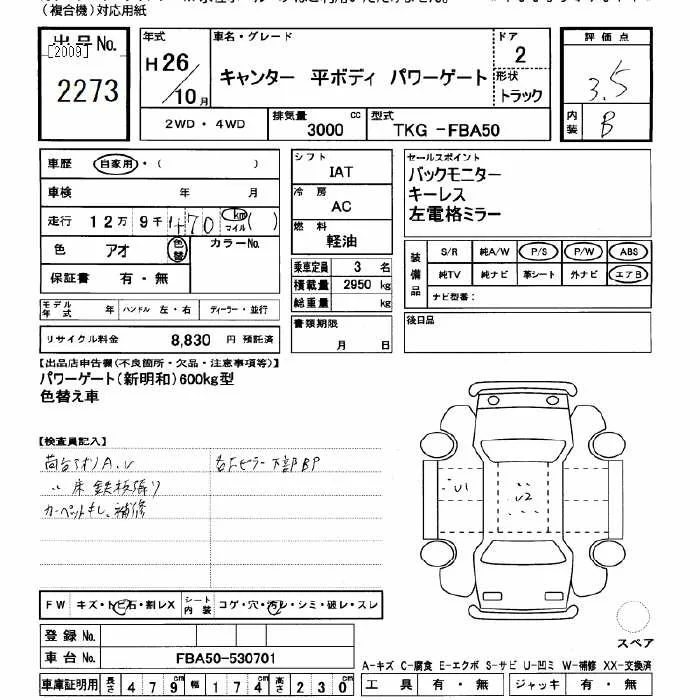 (複合機)対応用紙
出品 No.
[2009]
2273
年式
H 26 / 10 月
車名・グレード
キャンター 平ボディ パワーゲート
ドア
2
形状
トラック
評価点
3.5
内装
B
2WD ・ 4WD
排気量
3000 cc
型式
TKG -FBA50
車歴 自家用 ・( )
車検 年 月
走行 12万 9千 470 km マイル ( )
色 アオ 色替 カラーNo.
保証書 有 ・ 無
モデル年式 年 ハンドル 左・右 ディーラー・並行
リサイクル料金 8,830 円 預託済
シフト
IAT
冷房
AC
燃料
軽油
乗車定員 3 名
積載量 2950 kg
総重量 kg
書類期限
月 日
セールスポイント
バックモニター
キーレス
左電格ミラー
装備品
S/R 純A/W P/S P/W ABS
純TV 純ナビ 革シート 外ナビ エアB
ナビ型番:
後日品
【出品店申告欄(不良箇所・欠品・注意事項等)】
パワーゲート(新明和)600kg型
色替え車
【検査員記入】
荷台アオリA.U
〃 床鉄板張り
カーペットキレ、補修
右Fピラー下部BP
U1
U2
FW キズ・トビ石・割レX
シート内装 コゲ・穴・汚レ・シミ・破レ・スレ
登録 No.
車台 No. FBA50-530701
車庫証明用 長さ 479 幅 174 高さ 230
スペア
A-キズ C-腐食 E-エクボ S-サビ U-凹ミ W-補修 XX-交換済
工具 有 ・ 無 ジャッキ 有 ・ 無